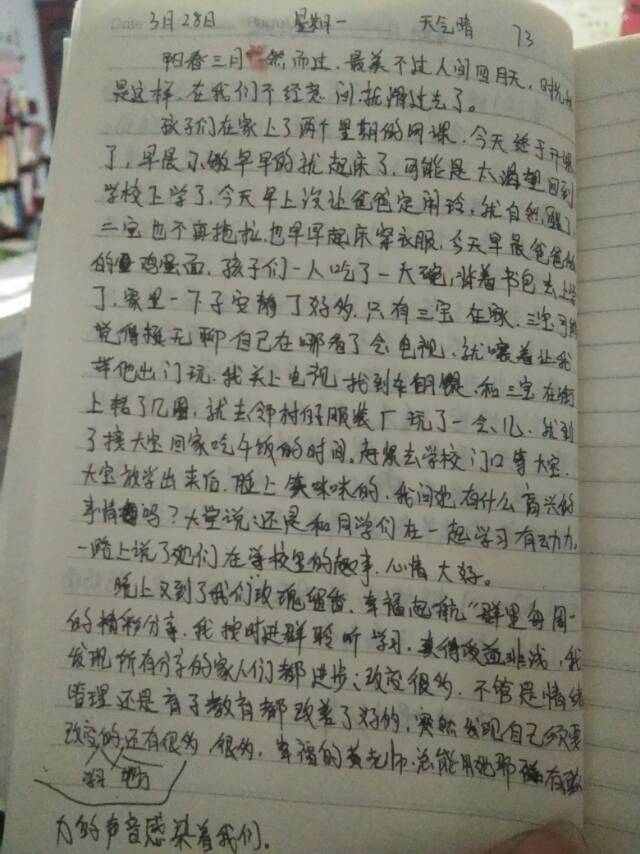 Date 3月28日 星期一 天气晴 73
阳春三月 然而过，最美不过人间四月天，时光
是这样，在我们不经意间就滑过去了。
孩子们在家上了两个星期的网课，今天终于开课
了，早晨不做早早的就起床了，可能是太渴望回到
学校上学了，今天早上没让爸爸定闹铃，就自然醒了，
二宝也不再拖拉，也早早起床穿衣服，今天早晨爸爸做
的鸡蛋面，孩子们一人吃了一大碗，背着书包去上学
了，家里一下子安静了好多，只有三宝在家，三宝可能
觉得挺无聊自己在哪看了会电视，就嚷着让我
带他出门玩，我关上电视找到车钥匙，和三宝在街
上转了几圈，就去邻村的服装厂玩了一会儿，我到
了接大宝回家吃午饭的时间，赶紧去学校门口等大宝，
大宝放学出来后，脸上笑咪咪的，我问她，有什么高兴的
事情吗？大宝说：还是和同学们在一起学习有动力，
一路上说了她们在学校里的趣事，心情大好。
晚上又到了我们玫瑰留香，幸福起航"群里每周一
的精彩分享，我按时进群聆听学习，真得受益非浅，我
发现所有分享的家人们都进步、改变很多，不管是情绪
管理还是育子教育都改善了好的，突然发现自己须要
改变的还有很多，很多，幸福的黄老师，总能用她那有
地方
力的声音感染着我们。